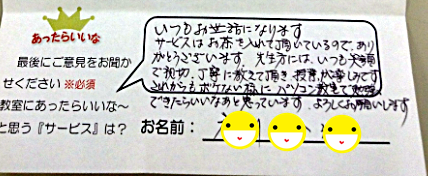 あったらいいな
最後にご意見をお聞か
せください ※必須
教室にあったらいいな～
と思う『サービス』は？
いつもお世話になります
サービスはお茶を入れて頂いているので、あり
がとうございます。先生方には、いつも笑顔
で親切、丁寧に教えて頂き、授業が楽しみです
これからもボケない様に パソコン教室で勉強
できたらいいなあと思っています。よろしくお願いします
お名前：